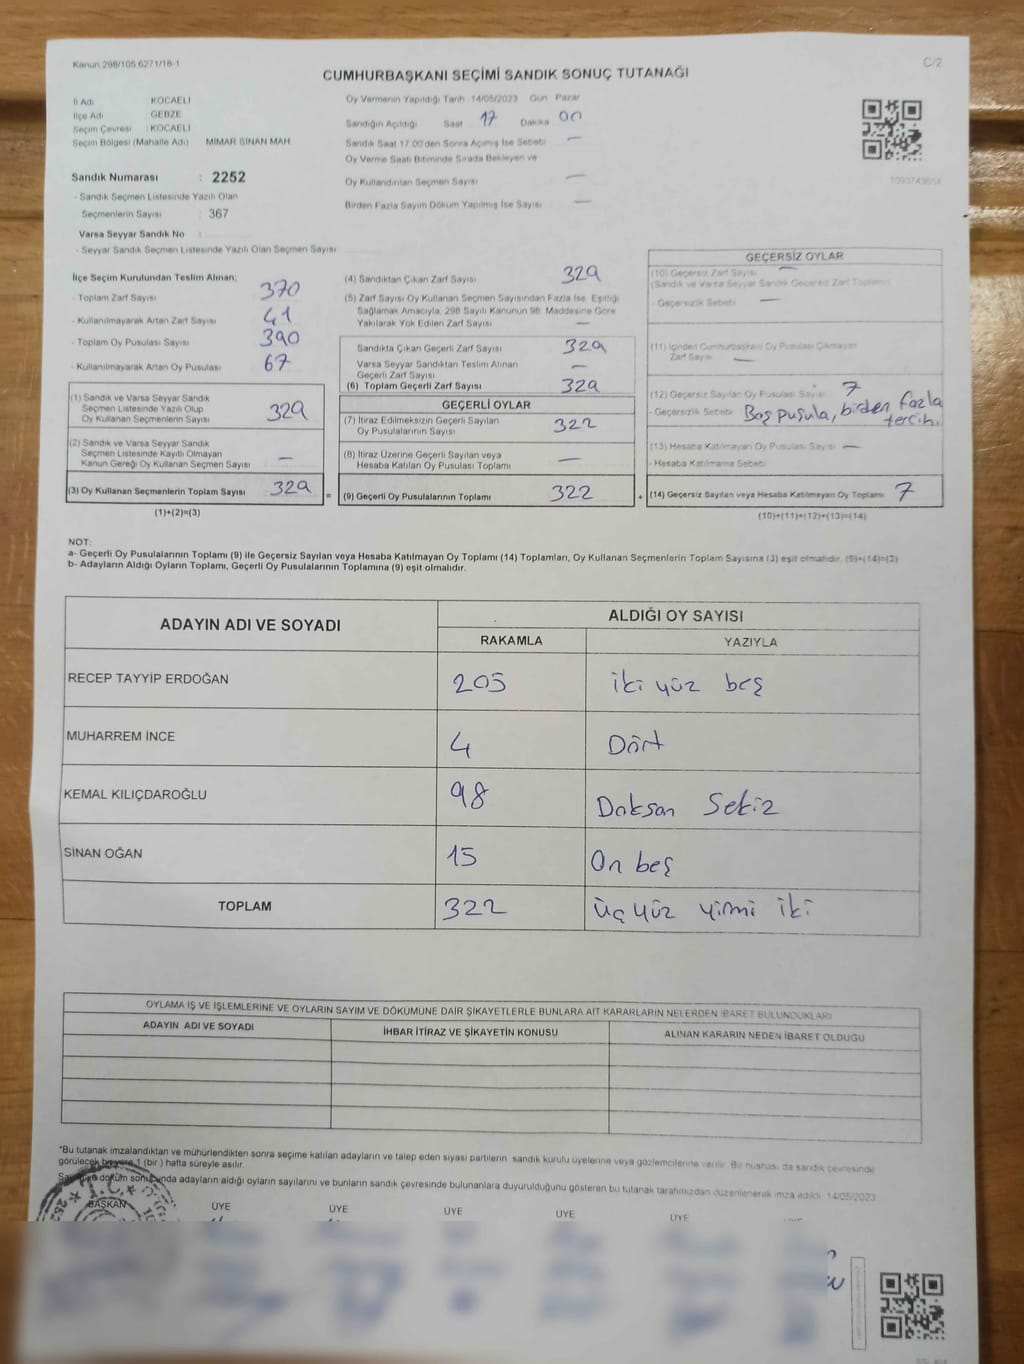 Kanun.298/105.6271/18-1
C/2
CUMHURBAŞKANI SEÇİMİ SANDIK SONUÇ TUTANAĞI
İl Adı KOCAELİ
İlçe Adı GEBZE
Seçim Çevresi : KOCAELİ
Seçim Bölgesi (Mahalle Adı) MİMAR SİNAN MAH.
Sandık Numarası : 2252
- Sandık Seçmen Listesinde Yazılı Olan
Seçmenlerin Sayısı : 367
Varsa Seyyar Sandık No :
- Seyyar Sandık Seçmen Listesinde Yazılı Olan Seçmen Sayısı
Oy Vermenin Yapıldığı Tarih 14/05/2023 Gün Pazar
Sandığın Açıldığı Saat 17 Dakika 00
Sandık Saat 17.00'den Sonra Açılmış İse Sebebi —
Oy Verme Saati Bitiminde Sırada Bekleyen ve
Oy Kullandırılan Seçmen Sayısı —
Birden Fazla Sayım Döküm Yapılmış İse Sayısı —
1093743654
İlçe Seçim Kurulundan Teslim Alınan;
- Toplam Zarf Sayısı 370
- Kullanılmayarak Artan Zarf Sayısı 41
- Toplam Oy Pusulası Sayısı 390
- Kullanılmayarak Artan Oy Pusulası 67
(1) Sandık ve Varsa Seyyar Sandık
Seçmen Listesinde Yazılı Olup
Oy Kullanan Seçmenlerin Sayısı 329
(2) Sandık ve Varsa Seyyar Sandık
Seçmen Listesinde Kayıtlı Olmayan
Kanun Gereği Oy Kullanan Seçmen Sayısı —
(3) Oy Kullanan Seçmenlerin Toplam Sayısı 329 =
(1)+(2)=(3)
(4) Sandıktan Çıkan Zarf Sayısı 329
(5) Zarf Sayısı Oy Kullanan Seçmen Sayısından Fazla İse, Eşitliği
Sağlamak Amacıyla, 298 Sayılı Kanunun 98. Maddesine Göre
Yakılarak Yok Edilen Zarf Sayısı —
Sandıkta Çıkan Geçerli Zarf Sayısı 329
Varsa Seyyar Sandıktan Teslim Alınan
Geçerli Zarf Sayısı —
(6) Toplam Geçerli Zarf Sayısı 329
GEÇERLİ OYLAR
(7) İtiraz Edilmeksizin Geçerli Sayılan
Oy Pusulalarının Sayısı 322
(8) İtiraz Üzerine Geçerli Sayılan veya
Hesaba Katılan Oy Pusulası Toplamı —
(9) Geçerli Oy Pusulalarının Toplamı 322 +
GEÇERSİZ OYLAR
(10) Geçersiz Zarf Sayısı —
(Sandık ve Varsa Seyyar Sandık Geçersiz Zarf Toplamı)
- Geçersizlik Sebebi —
(11) İçinden Cumhurbaşkanı Oy Pusulası Çıkmayan
Zarf Sayısı —
(12) Geçersiz Sayılan Oy Pusulası Sayısı 7
- Geçersizlik Sebebi Boş pusula, birden fazla
tercih.
(13) Hesaba Katılmayan Oy Pusulası Sayısı —
- Hesaba Katılmama Sebebi
(14) Geçersiz Sayılan veya Hesaba Katılmayan Oy Toplamı 7
(10)+(11)+(12)+(13)=(14)
NOT:
a- Geçerli Oy Pusulalarının Toplamı (9) ile Geçersiz Sayılan veya Hesaba Katılmayan Oy Toplamı (14) Toplamları, Oy Kullanan Seçmenlerin Toplam Sayısına (3) eşit olmalıdır. (9)+(14)=(3)
b- Adayların Aldığı Oyların Toplamı, Geçerli Oy Pusulalarının Toplamına (9) eşit olmalıdır.
ADAYIN ADI VE SOYADI ALDIĞI OY SAYISI
RAKAMLA YAZIYLA
RECEP TAYYİP ERDOĞAN 205 iki yüz beş
MUHARREM İNCE 4 Dört
KEMAL KILIÇDAROĞLU 98 Doksan Sekiz
SİNAN OĞAN 15 On beş
TOPLAM 322 üç yüz yirmi iki
OYLAMA İŞ VE İŞLEMLERİNE VE OYLARIN SAYIM VE DÖKÜMÜNE DAİR ŞİKAYETLERLE BUNLARA AİT KARARLARIN NELERDEN İBARET BULUNDUKLARI
ADAYIN ADI VE SOYADI İHBAR İTİRAZ VE ŞİKAYETİN KONUSU ALINAN KARARIN NEDEN İBARET OLDUĞU
*Bu tutanak imzalandıktan ve mühürlendikten sonra seçime katılan adayların ve talep eden siyasi partilerin sandık kurulu üyelerine veya gözlemcilerine verilir. Bir nüshası da sandık çevresinde
görülecek bir yere 1 (bir) hafta süreyle asılır.
Sayım ve döküm sonucunda adayların aldığı oyların sayılarını ve bunların sandık çevresinde bulunanlara duyurulduğunu gösteren bu tutanak tarafımızdan düzenlenerek imza edildi. 14/05/2023
BAŞKAN ÜYE ÜYE ÜYE ÜYE ÜYE
T.C.